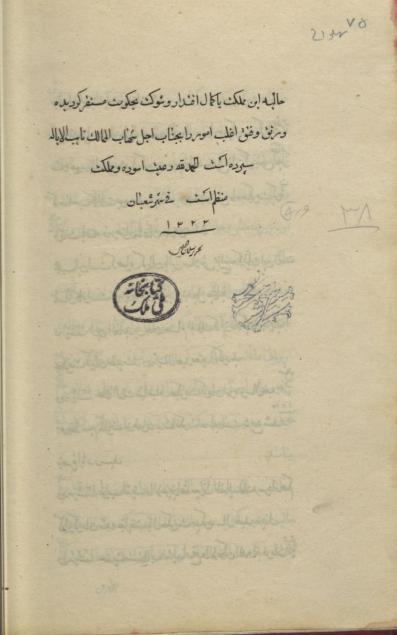 ٧۵
حالیه این مملکت باکمال اقتدار و شوکت بحکومت مستقر گردیده
و رتق و فتق اغلب امور را بجناب اجل شهاب الممالک نایب الایاله
سپرده است الحمدلله رعیت آسوده و مملکت
منظم است فی شهر شعبان
۱۳۲۲
۳۸
کتابخانه
ملی ملک